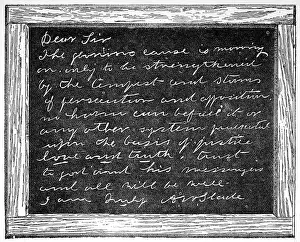 Dear Sir
The cause is moving
on only to be strengthened
by the tempest and storms
of persecution and opposition
no harm can befall it or
any other system
upon the basis of justice
love and truth. trust
to god and his messengers
and all will be well.
I am truly AW Slade